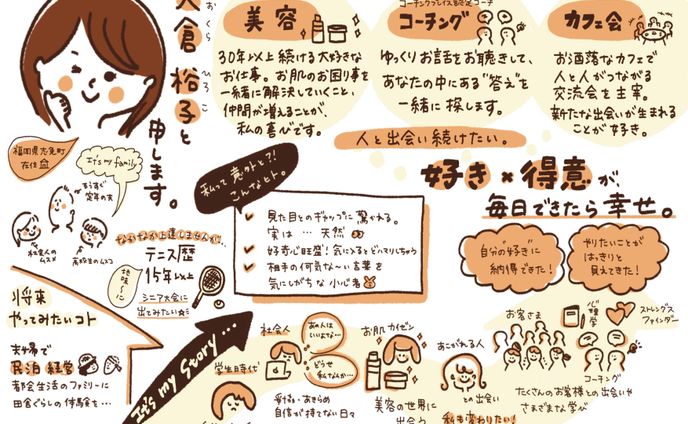 大倉 裕子と
おくら ひろこ
申します。
美容
30年以上続ける大好きな
お仕事。お肌のお困り事を
一緒に解決していくこと、
仲間が増えることが、
私の喜びです。
コーチング
ゆっくりお話をお聴きして、
あなたの中にある"答え"を
一緒に探します。
カフェ会
お洒落なカフェで
人と人がつながる
交流会を主宰。
新たな出会いが生まれる
ことが好き。
人と出会い続けたい。
好き×得意が、
毎日できたら幸せ。
福岡県志免町
在住
It's my family
もうすぐ
定年の夫
社会人の
ムスメ
高校生のムスコ
なかなか上達しませんが…
テニス歴
15年以上
地味〜に
シニア大会に
出てみたい☆
私って意外と?!
こんなヒト。
見た目とのギャップに驚かれる。
実は … 天然
好奇心旺盛!気に入るとドハマりしちゃう
相手の何気な〜い言葉を
気にしがちな小心者
将来
やってみたいコト
夫婦で
民泊経営
都会生活のファミリーに
田舎ぐらしの体験を…
It's my Story…
学生時代
社会人
あの人は
いいよな…
どうせ
私なんか…
妥協・あきらめ
自信が持てない日々
お肌カイゼン
美容の世界に
出会う
あこがれる人
との出会い
私も変わりたい!
自分の好きに
納得できた!
やりたいことが
はっきりと
見えてきた!
お客さま
心理学
ストレングス
ファインダー
コーチング
たくさんのお客様との出会いや
さまざまな学び